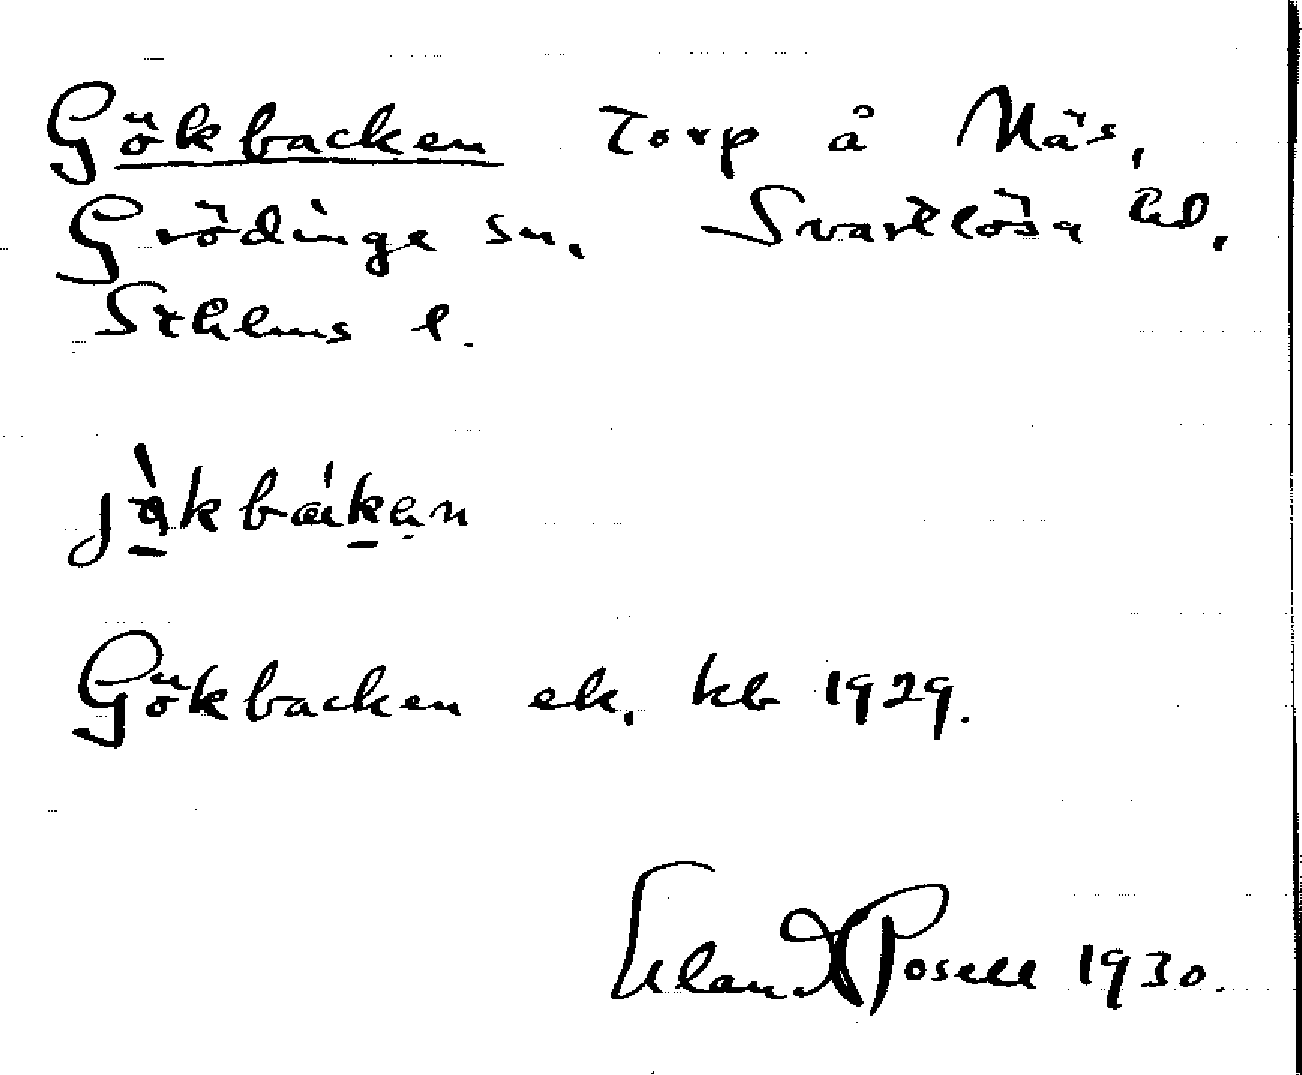 Gökbacken Torp å Näs,
Grödinge sn. Svartlösa hd,
Sthlms l.
Gökbacken ek. kb 1929.
Erland Rosell 1930.